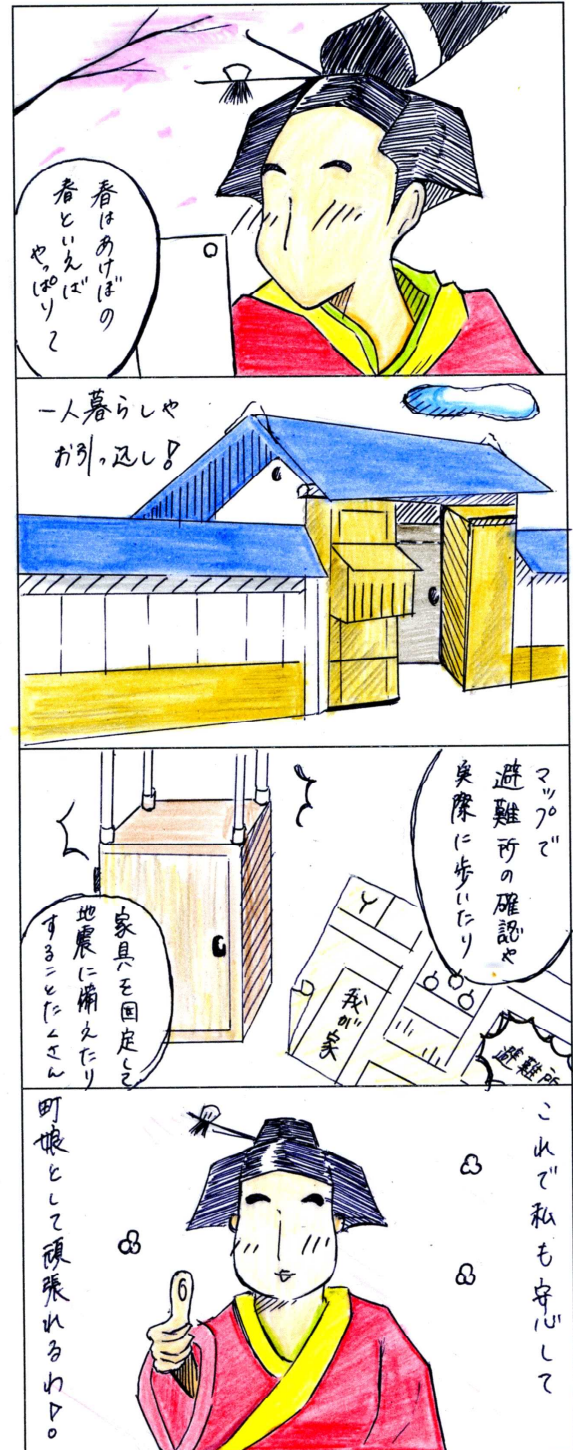 春はあけぼの
春といえば
やっぱり〜
一人暮らしや
お引っ越し！
マップで
避難所の確認や
実際に歩いたり
我が家
避難所
家具を固定して
地震に備えたり
することたくさん
これで私も安心して
町娘として頑張れるわ！。